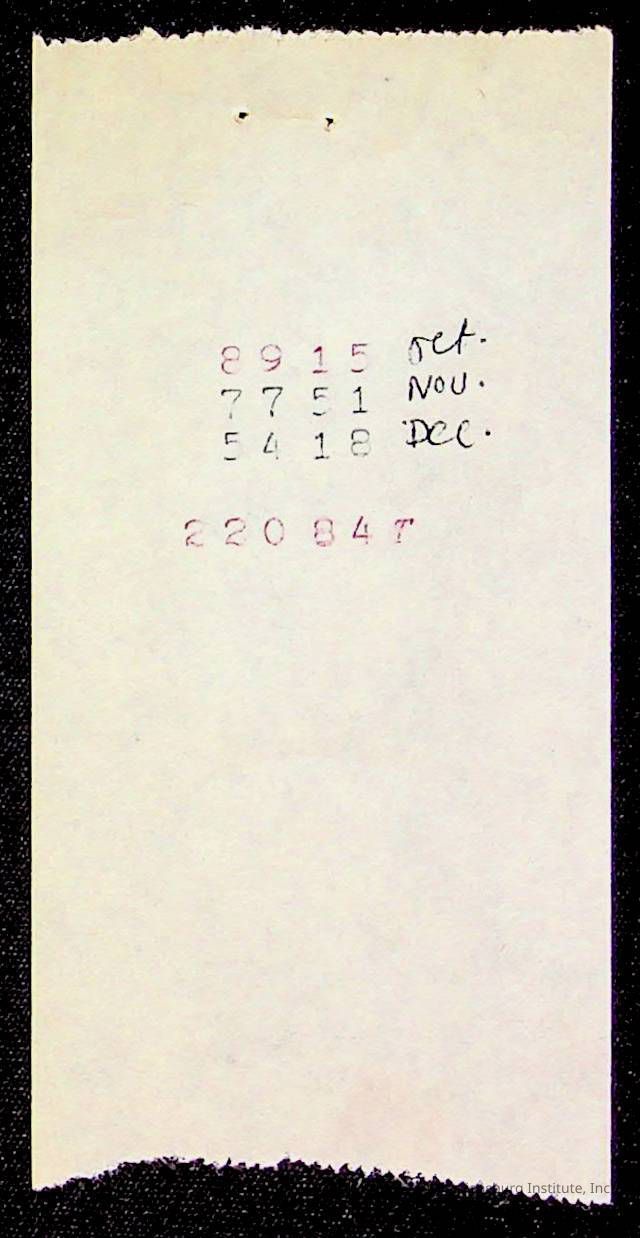 89 15 Oct.
77 51 Nov.
54 18 Dec.
220 84 T
Institute, Inc